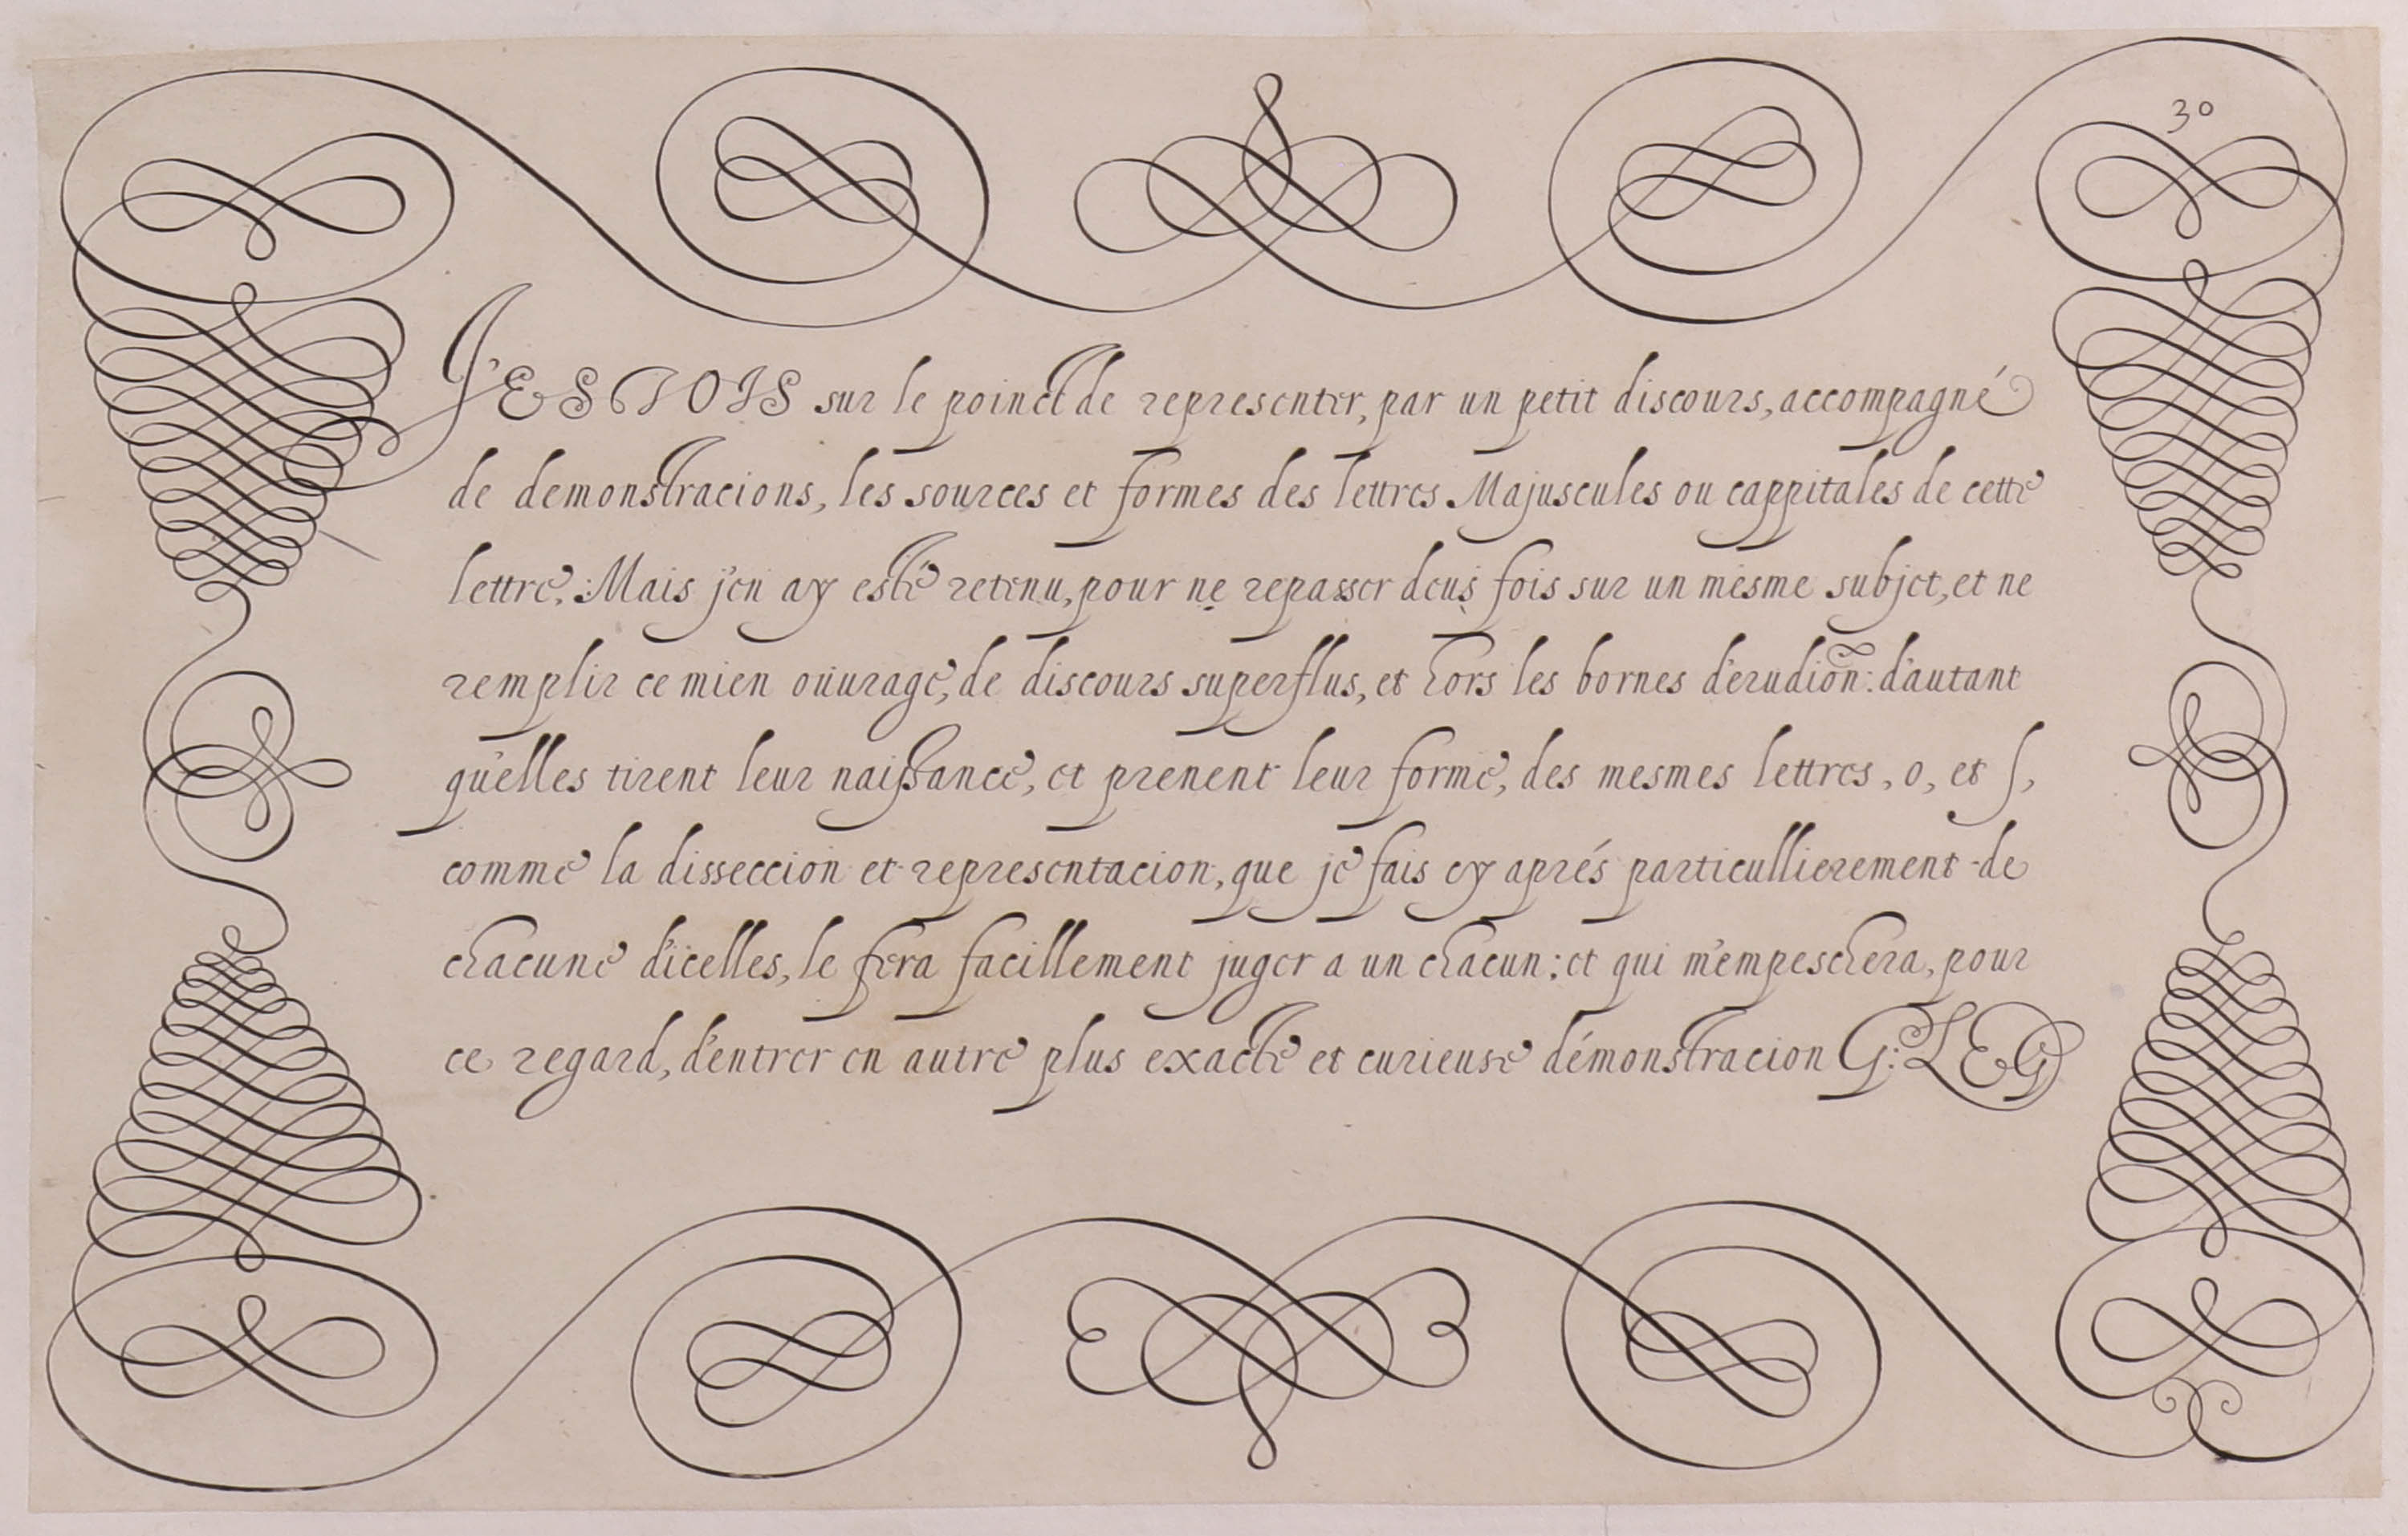 30
J'ESTOIS sur le poinct de representer, par un petit discours, accompagné
de demonstracions, les sources et formes des lettres Majuscules ou cappitales de cette
lettre. Mais j'en ay esté retenu, pour ne repasser deus fois sur un mesme subjet, et ne
remplir ce mien ouurage, de discours superflus, et hors les bornes d'erudiõn: d'autant
qu'elles tirent leur naissance, et prenent leur forme, des mesmes lettres, o, et ſ,
comme la disseccion et representacion, que je fais cy aprés particullierement de
chacune d'icelles, le fera facillement juger a un chacun: et qui m'empeschera, pour
ce regard, d'entrer en autre plus exacte et curieuse démonstracion G: LEG